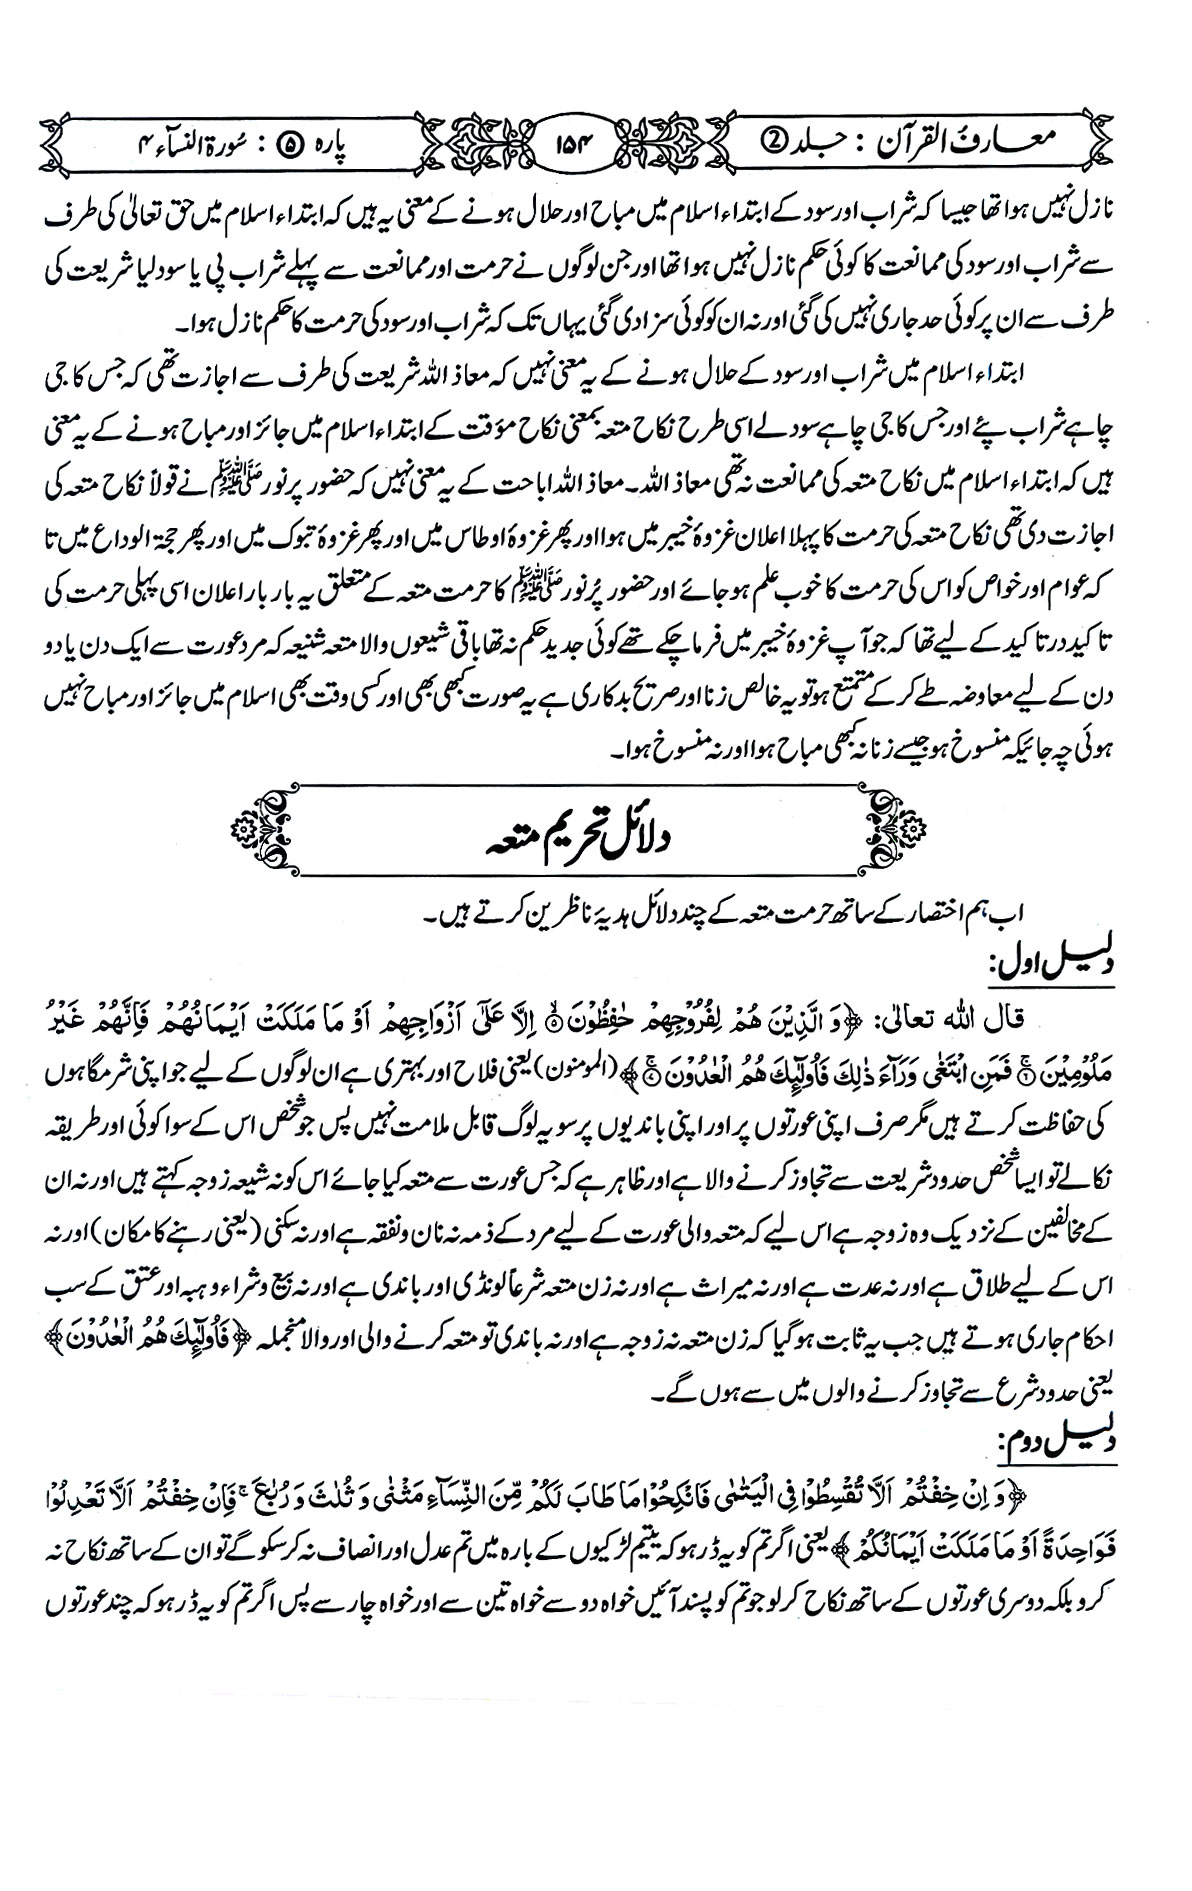 معارف القرآن : جلد ②
۱۵۴
پارہ ⑤ : سُورۃ النسآء ۴
نازل نہیں ہوا تھا جیسا کہ شراب اور سود کے ابتداء اسلام میں مباح اور حلال ہونے کے معنی یہ ہیں کہ ابتداء اسلام میں حق تعالیٰ کی طرف
سے شراب اور سود کی ممانعت کا کوئی حکم نازل نہیں ہوا تھا اور جن لوگوں نے حرمت اور ممانعت سے پہلے شراب پی یا سود لیا شریعت کی
طرف سے ان پر کوئی حد جاری نہیں کی گئی اور نہ ان کو کوئی سزا دی گئی یہاں تک کہ شراب اور سود کی حرمت کا حکم نازل ہوا۔
ابتداء اسلام میں شراب اور سود کے حلال ہونے کے یہ معنی نہیں کہ معاذ اللہ شریعت کی طرف سے اجازت تھی کہ جس کا جی
چاہے شراب پئے اور جس کا جی چاہے سود لے اسی طرح نکاح متعہ بمعنی نکاح مؤقت کے ابتداء اسلام میں جائز اور مباح ہونے کے یہ معنی
ہیں کہ ابتداء اسلام میں نکاح متعہ کی ممانعت نہ تھی معاذ اللہ۔ معاذ اللہ اباحت کے یہ معنی نہیں کہ حضور پر نور ﷺ نے قولاً نکاح متعہ کی
اجازت دی تھی نکاح متعہ کی حرمت کا پہلا اعلان غزوۂ خیبر میں ہوا اور پھر غزوۂ اوطاس میں اور پھر غزوۂ تبوک میں اور پھر حجۃ الوداع میں تا
کہ عوام اور خواص کو اس کی حرمت کا خوب علم ہو جائے اور حضور پُرنور ﷺ کا حرمت متعہ کے متعلق یہ بار بار اعلان اسی پہلی حرمت کی
تاکید در تاکید کے لیے تھا کہ جو آپ غزوۂ خیبر میں فرما چکے تھے کوئی جدید حکم نہ تھا باقی شیعوں والا متعہ شنیعہ کہ مرد عورت سے ایک دن یا دو
دن کے لیے معاوضہ طے کر کے متمتع ہو تو یہ خالص زنا اور صریح بدکاری ہے یہ صورت کبھی بھی اور کسی وقت بھی اسلام میں جائز اور مباح نہیں
ہوئی چہ جائیکہ منسوخ ہو جیسے زنا نہ کبھی مباح ہوا اور نہ منسوخ ہوا۔
دلائل تحریم متعہ
اب ہم اختصار کے ساتھ حرمت متعہ کے چند دلائل ہدیۂ ناظرین کرتے ہیں۔
دلیل اول:
قال الله تعالى: ﴿وَ الَّذِيْنَ هُمْ لِفُرُوْجِهِمْ حٰفِظُوْنَ ۵ اِلَّا عَلٰٓى اَزْوَاجِهِمْ اَوْ مَا مَلَكَتْ اَيْمَانُهُمْ فَاِنَّهُمْ غَيْرُ
مَلُوْمِيْنَ ۶ فَمَنِ ابْتَغٰى وَرَآءَ ذٰلِكَ فَاُولٰٓئِكَ هُمُ الْعٰدُوْنَ ۷﴾ (المومنون) یعنی فلاح اور بہتری ہے ان لوگوں کے لیے جو اپنی شرمگاہوں
کی حفاظت کرتے ہیں مگر صرف اپنی عورتوں پر اور اپنی باندیوں پر سو یہ لوگ قابل ملامت نہیں پس جو شخص اس کے سوا کوئی اور طریقہ
نکالے تو ایسا شخص حدود شریعت سے تجاوز کرنے والا ہے اور ظاہر ہے کہ جس عورت سے متعہ کیا جائے اس کو نہ شیعہ زوجہ کہتے ہیں اور نہ ان
کے مخالفین کے نزدیک وہ زوجہ ہے اس لیے کہ متعہ والی عورت کے لیے مرد کے ذمہ نہ نان و نفقہ ہے اور نہ سکنی (یعنی رہنے کا مکان) اور نہ
اس کے لیے طلاق ہے اور نہ عدت ہے اور نہ میراث ہے اور نہ زن متعہ شرعاً لونڈی اور باندی ہے اور نہ بیع و شراء و ہبہ اور عتق کے سب
احکام جاری ہوتے ہیں جب یہ ثابت ہو گیا کہ زن متعہ نہ زوجہ ہے اور نہ باندی تو متعہ کرنے والی اور والا منجملہ ﴿فَاُولٰٓئِكَ هُمُ الْعٰدُوْنَ﴾
یعنی حدود شرع سے تجاوز کرنے والوں میں سے ہوں گے۔
دلیل دوم:
﴿وَ اِنْ خِفْتُمْ اَلَّا تُقْسِطُوْا فِى الْيَتٰمٰى فَانْكِحُوْا مَا طَابَ لَكُمْ مِّنَ النِّسَآءِ مَثْنٰى وَ ثُلٰثَ وَ رُبٰعَ ۚ فَاِنْ خِفْتُمْ اَلَّا تَعْدِلُوْا
فَوَاحِدَةً اَوْ مَا مَلَكَتْ اَيْمَانُكُمْ﴾ یعنی اگر تم کو یہ ڈر ہو کہ یتیم لڑکیوں کے بارہ میں تم عدل اور انصاف نہ کر سکو گے تو ان کے ساتھ نکاح نہ
کرو بلکہ دوسری عورتوں کے ساتھ نکاح کر لو جو تم کو پسند آئیں خواہ دو سے خواہ تین سے اور خواہ چار سے پس اگر تم کو یہ ڈر ہو کہ چند عورتوں